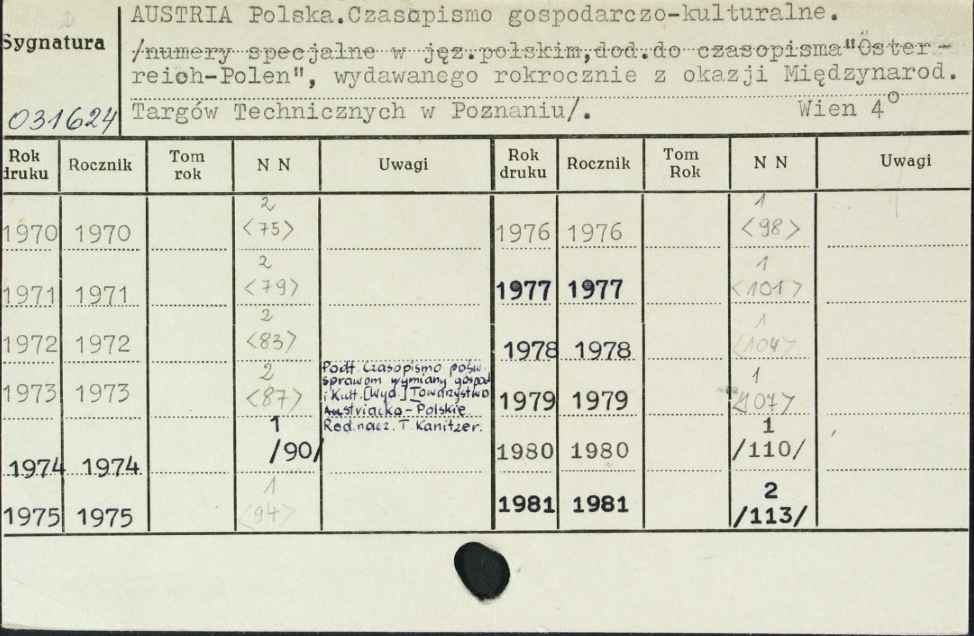 AUSTRIA Polska.Czasopismo gospodarczo-kulturalne.
Sygnatura
/numery specjalne w jęz.polskim,dod.do czasopisma"Öster-
reich-Polen", wydawanego rokrocznie z okazji Międzynarod.
031624 Targów Technicznych w Poznaniu/. Wien 4°
Rok druku Rocznik Tom rok N N Uwagi Rok druku Rocznik Tom Rok N N Uwagi
1970 1970 2 <75> 1976 1976 1 <98>
1971 1971 2 <79> 1977 1977 1 <101>
1972 1972 2 <83> 1978 1978 1 <104>
1973 1973 2 <87> 1979 1979 1 <107>
Podt. Czasopismo pośw.
sprawom wymiany gospod
i Kult. [Wyd.] Towarzystwo
Austriacko-Polskie
Red. nacz. T. Kanitzer.
1974 1974 1 /90/ 1980 1980 1 /110/
1975 1975 1 <94> 1981 1981 2 /113/